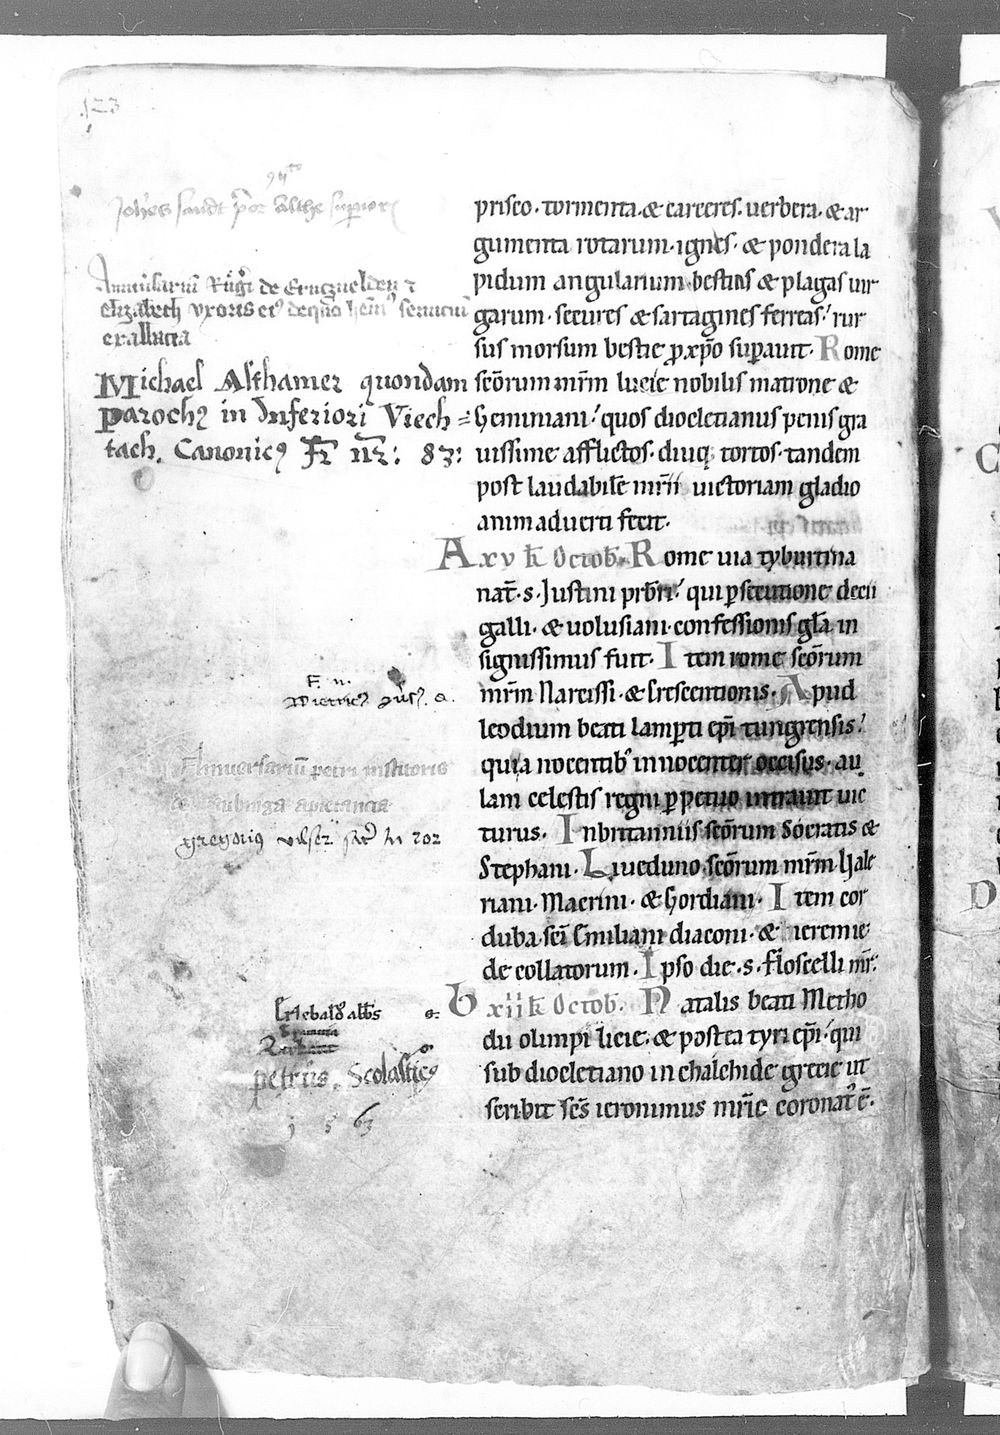 123
Joh'es
Anniuersariu Rugeri de
elizabeth vxoris ei' de quo seruiciu
Michael Althamer quondam
Paroch9 in Inferiori Viech=
tach. Canonic9 Fr nr: 83:
prisco · tormenta · & carceres · uerbera · & ar
gumenta rotarum · ignes · & pondera la
pidum angularium · bestias & plagas uir
garum · secures & sartagines ferreas · rur
sus morsum bestie p xp̄o supauit · Rome
scōrum mr̄m lucie nobilis matrone &
Geminiani · quos dioclecianus penis gra
uissime afflictos · diuq; tortos · tandem
post laudabile mr̄ii uictoriam gladio
animaduerti fecit ·
A xv kl Octob · Rome uia tyburtina
nat̄ · s · Justini prb̄ri · qui psecutione decii
galli · & uolusiani · confessionis gl̄a in
signissimus fuit · Item rome scōrum
mr̄m Narcissi · & Crescentionis · Apud
leodium beati lamp̄ti ep̄i tungrensis ·
quia nocentib' innocenter occisus · au
lam celestis regni ppetuo intrauit uic
turus · In britanniis scōrum Socratis &
Stephani · Liueduno · scōrum mr̄m Vale
riani · Macrini · & Gordiani · Item cor
duba · sc̄i Emiliani diaconi · & ieremie
decollatorum · Ipso die · s · floscelli mr̄ ·
F. n.
Anniuersariu petri institoris
gregorius
G xiiii kl Octob · Natalis beati Metho
dii olimpi licie · & postea tyri ep̄i · qui
sub diocletiano in chalchide grecie ut
scribit sc̄s ieronimus mr̄ie coronat' ē ·
Erchebald9 abbs
petrus Scolastic9
1563